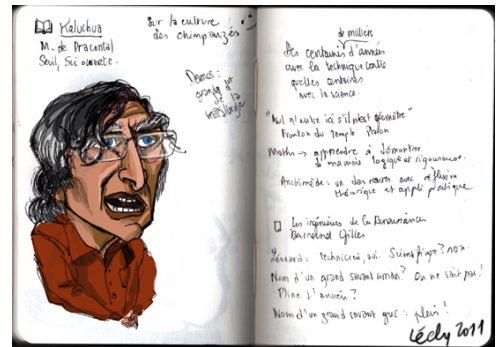 Kaluchua
M. de Pracontal
Seuil, Sci ouverte.
Sur la culture
des chimpanzés
Demos :
grands
de la
de milliers
Des centaines d'années
avec la technique contre
quelles centaines
avec la science.
"Nul n'entre ici s'il n'est géomètre"
Fronton du temple Platon
Math → apprendre à démontrer
d'manière logique et rigoureuse.
Archimède : un des rares avec réflexion
théorique et appli pratique
Les ingénieurs de la Renaissance
Bertrand Gilles
Léonard : technicien, oui Scientifique ? non.
Nom d'un grand savant romain ? On ne sait pas !
Pline l'ancien ?
Nom d'un grand savant grec : plein !
Lécly 2011